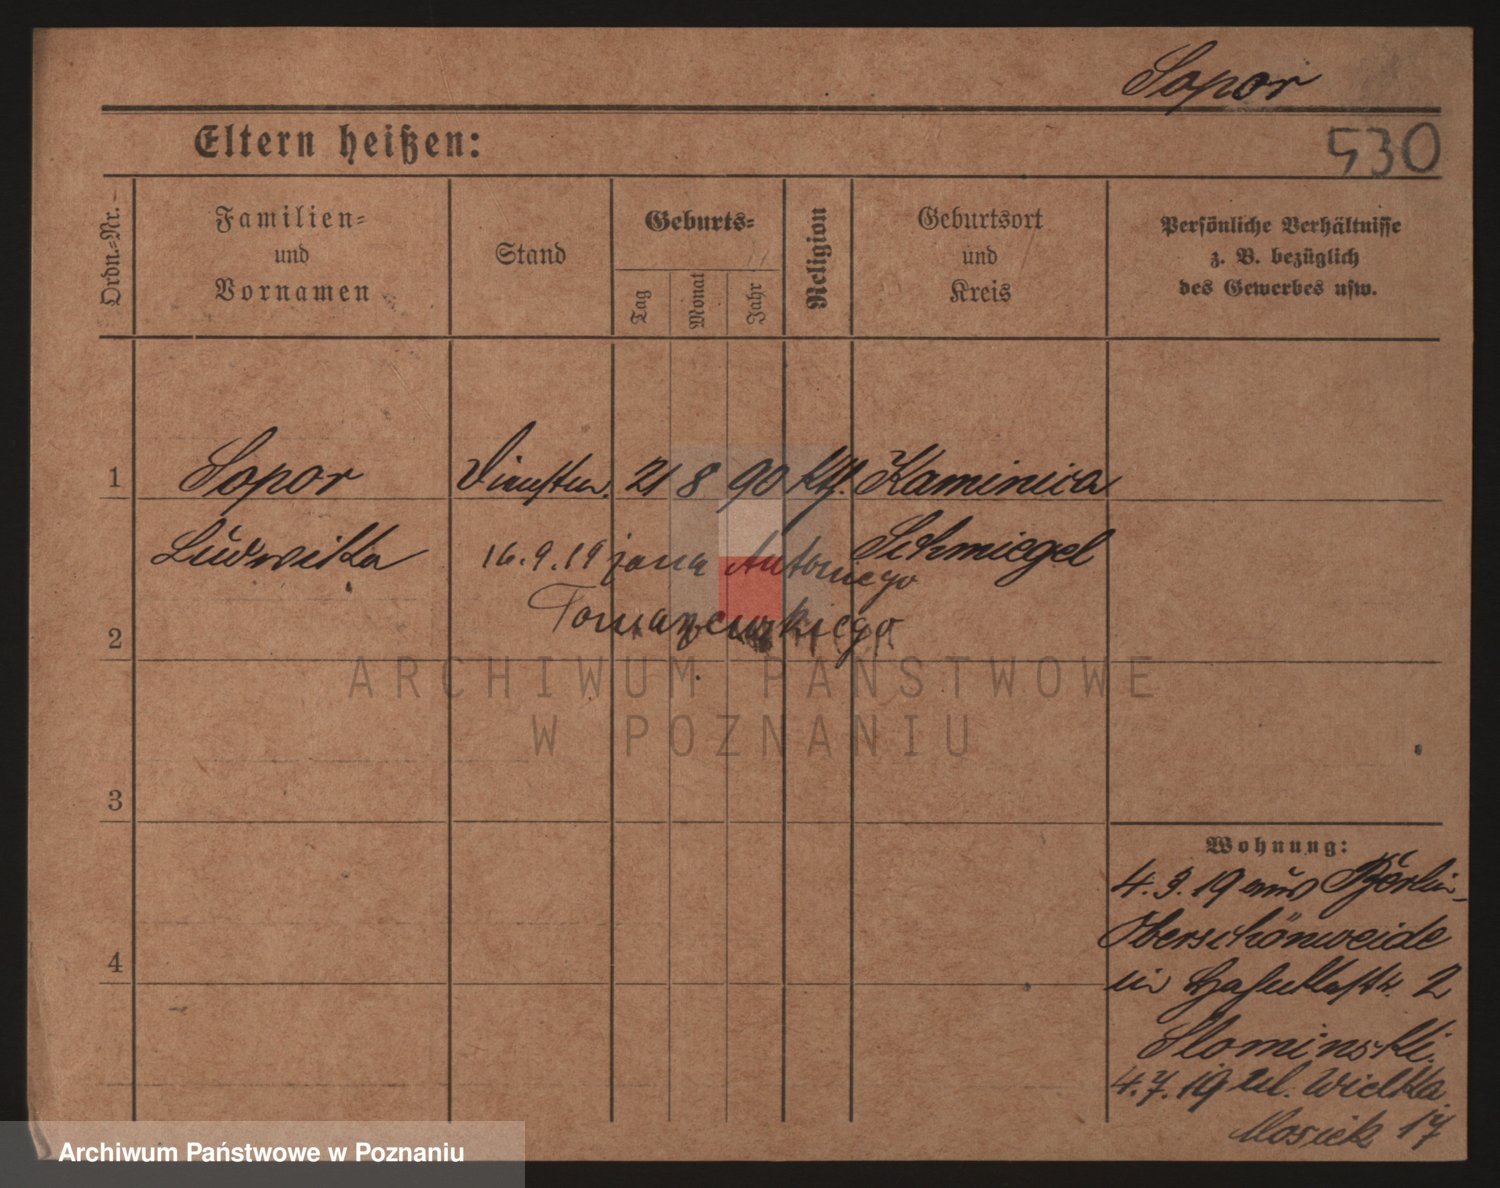 Sopor
Eltern heißen:
530
Ordn.-Nr.
Familien-
und
Vornamen
Stand
Geburts-
Tag
Monat
Jahr
Religion
Geburtsort
und
Kreis
Persönliche Verhältnisse
z. B. bezüglich
des Gewerbes usw.
1
Sopor
21 8 90 kth. Kaminica
Ludwika
Schmiegel
16.9.19 żona Antoniego
2
ARCHIWUM PAŃSTWOWE
W POZNANIU
3
Wohnung:
4.3.19 aus Berlin-
Oberschönweide
4
in 2
Slominski.
4.7.19 ul. Wielka
17
Archiwum Państwowe w Poznaniu